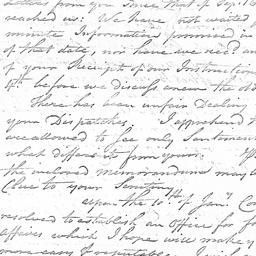 letters from you since that of Sep. 16
reached us: We have not waited
minute Information promised in
of that date, nor have we rec'd any
of your Receipt of our Instructions
before we discuss anew the old
There has been unfair Dealing
your Dispatches. I apprehend
are allowed to see only Sentiments
what different from yours.
the inclosed memorandum may
Clue to your Scrutiny
upon the 10th of Jany. Con
resolved to establish an Office for fo
affairs which I hope will make y
more easy